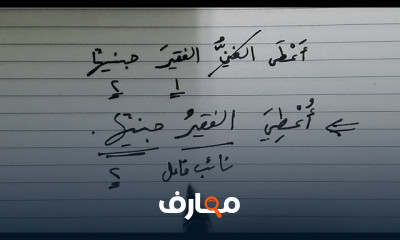 أَعْطَى الغنيُّ الفقيرَ جنيهًا
١ ٢
أُعْطِيَ الفقيرُ جنيهًا .
نائب فاعل ٢
معارف